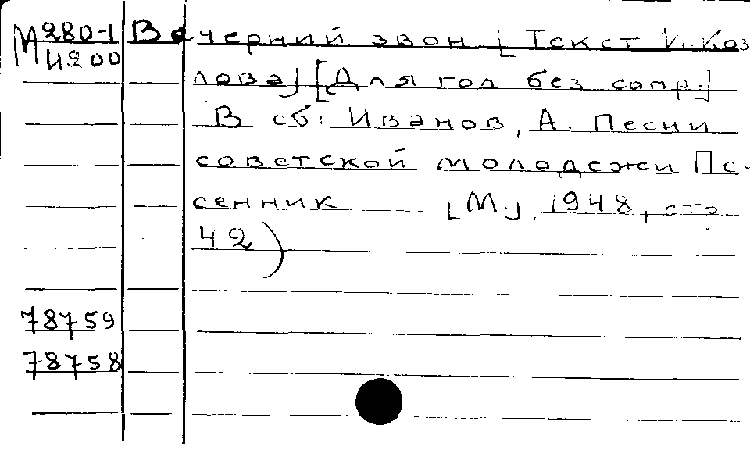 М 280-1 Вечерний звон [Текст И. Коз
4200 лова] [Для гол без сопр.]
В сб: Иванов, А. Песни
советской молодежи Пе-
сенник [М], 1948, стр
42)
78759
78758